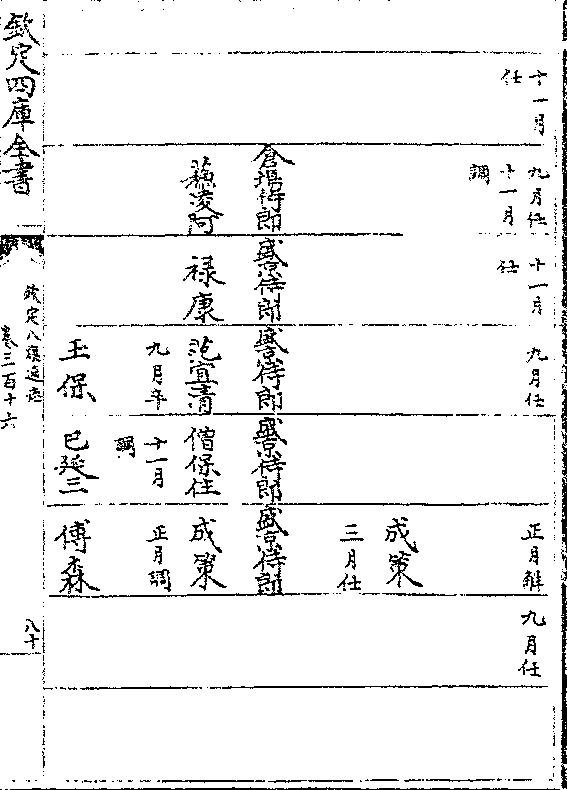 十一月
任
九月任
十一月
調
十一月
任
九月任
正月解
九月任
成策
三月任
倉場侍郎
盛京侍郎
盛京侍郎
盛京侍郎
盛京侍郎
蘇凌阿
祿康
范宜清
僧保住
成策
九月卒
十一月
調
正月調
王保
巴延三
傅森
欽定四庫全書
欽定八旗通志
卷三百十六
八十